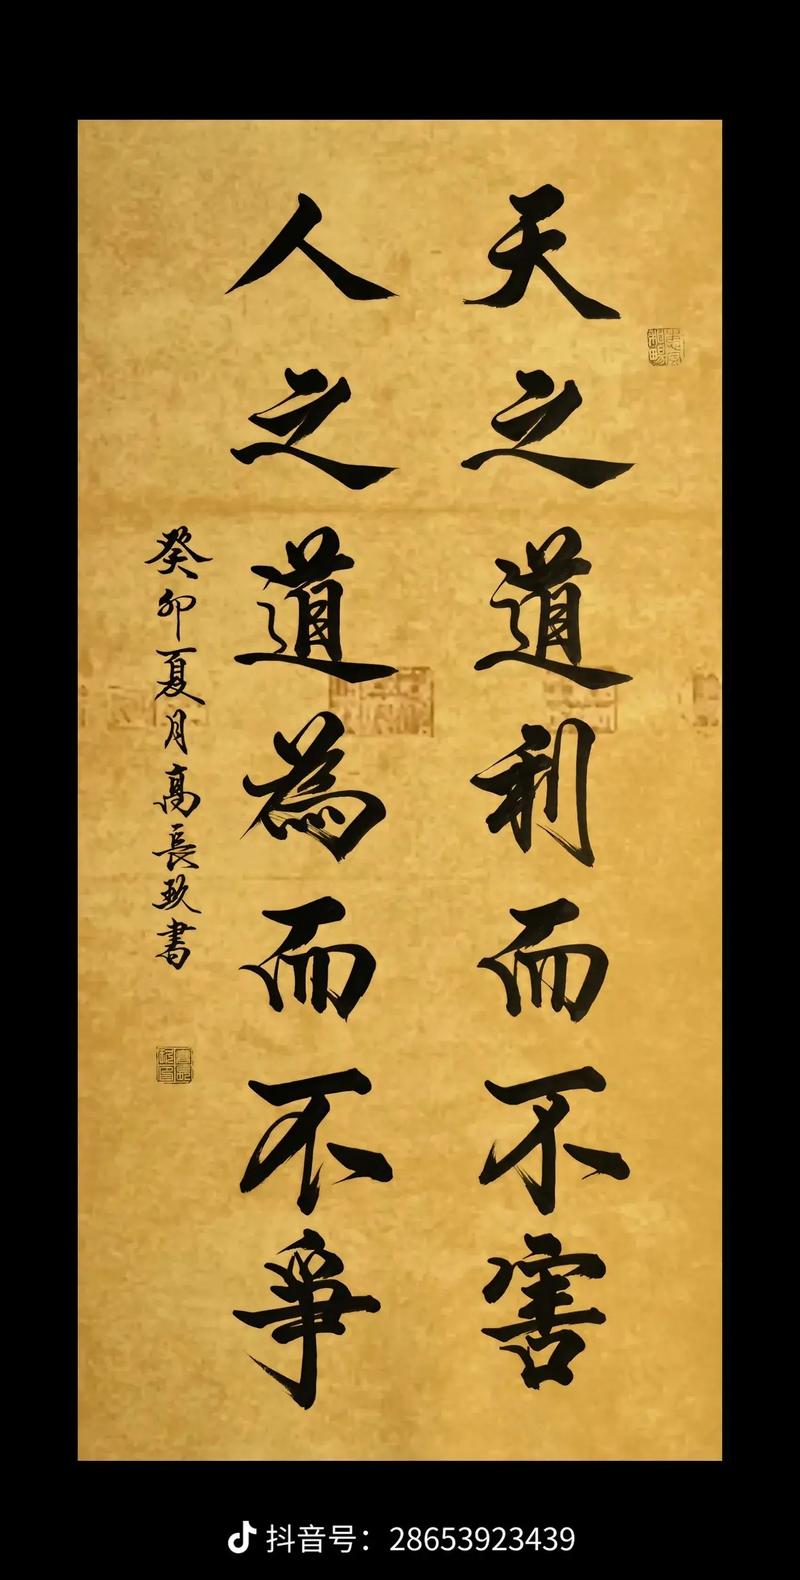 天之道利而不害
人之道為而不爭
癸卯夏月高長玖書
抖音号：28653923439